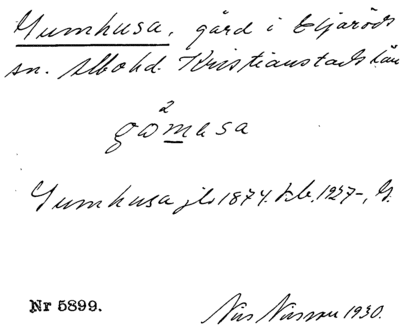 Gumhusa, gård i Eljaröds
sn. Albohd. Kristianstads län
2
gomasa
Gumhusa jb 1874. 1927-, G.
Nr 5899.
Nils Nilsson 1930.